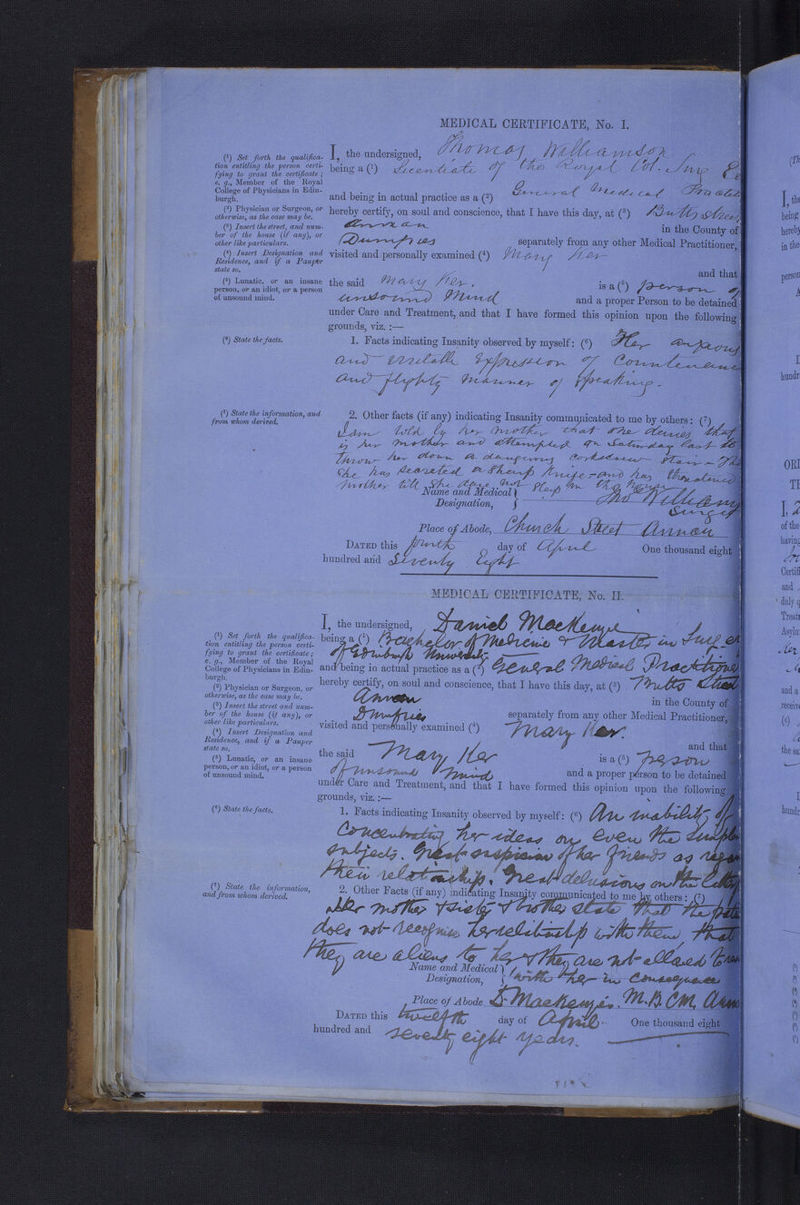 MEDICAL CERTIFICATE, No. I.
(¹) Set forth the qualifica-
tion entitling the person certi-
fying to grant the certificate;
e. g., Member of the Royal
College of Physicians in Edin-
burgh.
(²) Physician or Surgeon, or
otherwise, as the case may be.
(³) Insert the street, and num-
ber of the house (if any), or
other like particulars.
(⁴) Insert Designation and
Residence, and if a Pauper
state so.
(⁵) Lunatic, or an insane
person, or an idiot, or a person
of unsound mind.
(⁶) State the facts.
(⁷) State the information, and
from whom derived.
I, the undersigned, Thomas Williamson
being a (¹) Licentiate of the Royal Col. Surg Ed
and being in actual practice as a (²) General Medical
hereby certify, on soul and conscience, that I have this day, at (³) Butts Street
Annan in the County of
Dumfries separately from any other Medical Practitioner,
visited and personally examined (⁴) Mary Ker
and that
the said Mary Ker. is a (⁵) person of
unsound Mind and a proper Person to be detained
under Care and Treatment, and that I have formed this opinion upon the following
grounds, viz. :—
1. Facts indicating Insanity observed by myself: (⁶) Her anxious
and expression of Countenance
and flighty manner of speaking.
2. Other facts (if any) indicating Insanity communicated to me by others: (⁷)
I am told by her mother that she denies that
is her mother and attempted on Saturday last to
throw her down a dangerous stair - 
She has secreted a sharp knife - and has threatened
mother till she does not sleep in the house
Name and Medical Designation, Tho Williams
Surge
Place of Abode, Church Street Annan
DATED this fourth day of April One thousand eight
hundred and Seventy Eight
MEDICAL CERTIFICATE, No. II.
(¹) Set forth the qualifica-
tion entitling the person certi-
fying to grant the certificate;
e. g., Member of the Royal
College of Physicians in Edin-
burgh.
(²) Physician or Surgeon, or
otherwise, as the case may be.
(³) Insert the street and num-
ber of the house (if any), or
other like particulars.
(⁴) Insert Designation and
Residence, and if a Pauper
state so.
(⁵) Lunatic, or an insane
person, or an idiot, or a person
of unsound mind.
(⁶) State the facts.
(⁷) State the information,
and from whom derived.
I, the undersigned, Daniel MacKenzie
being a (¹) Bachelor of Medicine & Master in Surger
of Edinburgh University
and being in actual practice as a (²) General Medical Practitione
hereby certify, on soul and conscience, that I have this day, at (³) Butts Street
Annan in the County of
Dumfries separately from any other Medical Practitioner,
visited and personally examined (⁴) Mary Ker.
and that
the said Mary Ker is a (⁵) person
of unsound mind and a proper person to be detained
under Care and Treatment, and that I have formed this opinion upon the following
grounds, viz. :—
1. Facts indicating Insanity observed by myself: (⁶) An inability of
Concentrating her ideas on even the simple
subjects. Great suspicion of her friends as regar
their relationship. Great delusions on the latter
2. Other Facts (if any) indicating Insanity communicated to me by others: (⁷)
Her mother & sister & brother state that the pati
does not recognise her relationship with them, that
they are aliens to her & they are not allowed to
with her in consequence
Name and Medical Designation,
Place of Abode D MacKenzie. M.B. CM, Ann
DATED this twelfth day of April One thousand eight
hundred and seventy eight years.